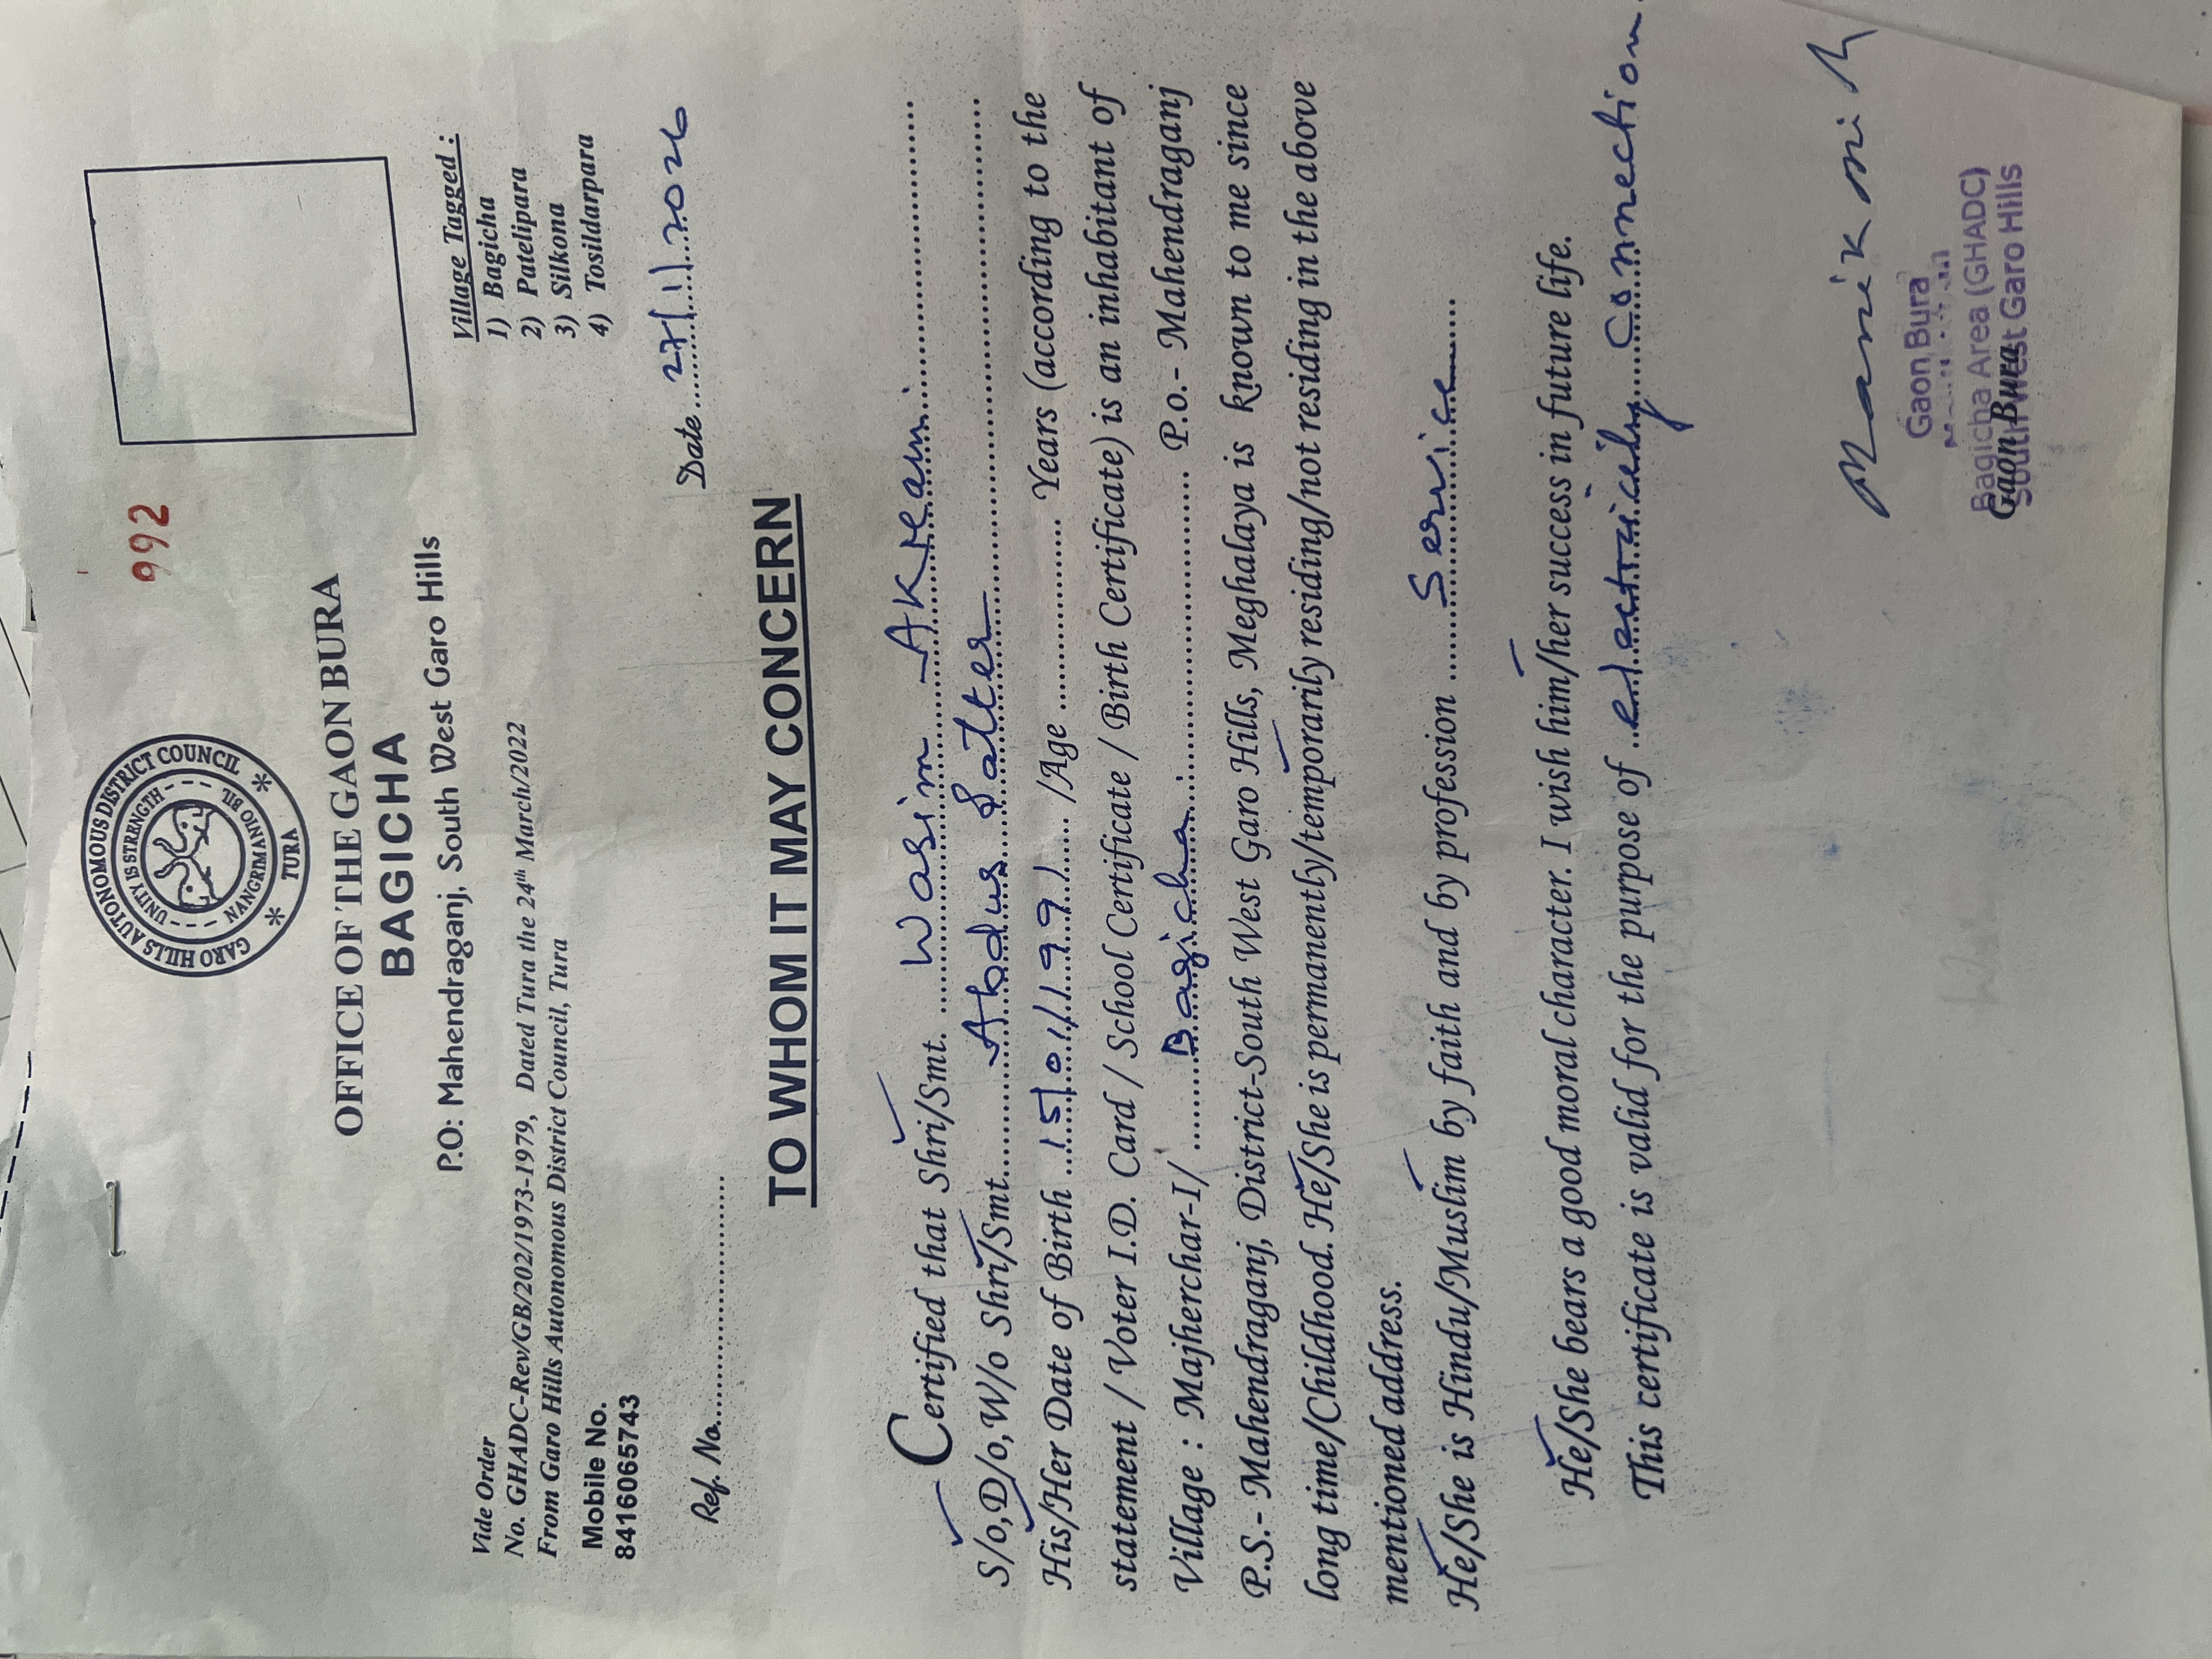 GARO HILLS AUTONOMOUS DISTRICT COUNCIL
UNITY IS STRENGTH
NANGRIMANIO BIL
TURA
992
OFFICE OF THE GAON BURA
BAGICHA
P.O: Mahendraganj, South West Garo Hills
Vide Order
No. GHADC-Rev/GB/202/1973-1979, Dated Tura the 24th March/2022
From Garo Hills Autonomous District Council, Tura
Mobile No.
8416065743
Village Tagged :
1) Bagicha
2) Patelipara
3) Silkona
4) Tosildarpara
Ref. No.............................. Date 27/1/2026
TO WHOM IT MAY CONCERN
Certified that Shri/Smt. Wasim AKream
S/o,D/o,W/o Shri/Smt. Abdus Satter
His/Her Date of Birth 15/01/1991 /Age .................. Years (according to the
statement / Voter I.D. Card / School Certificate / Birth Certificate) is an inhabitant of
Village : Majherchar-I/ Bagicha P.o.- Mahendraganj
P.S.- Mahendraganj, District-South West Garo Hills, Meghalaya is known to me since
long time/Childhood. He/She is permanently/temporarily residing/not residing in the above
mentioned address.
He/She is Hindu/Muslim by faith and by profession Service
He/She bears a good moral character. I wish him/her success in future life.
This certificate is valid for the purpose of electricity connection
Manik mia
Gaon Bura
Bagicha Area (GHADC)
Gaon Bura
South West Garo Hills